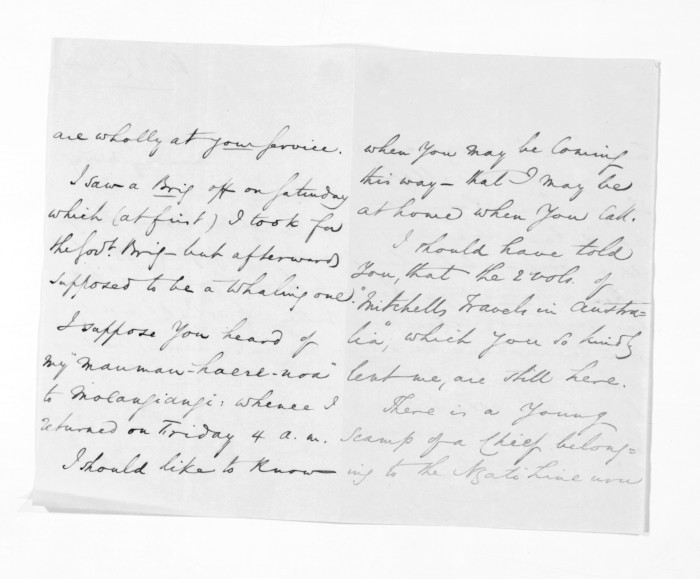 are wholly at your service.
I saw a Brig off on Saturday
which (at first) I took for
the Govt. Brig – but afterwards
supposed to be a whaling one.
I suppose You heard of
my "mauman-haere-noa"
to Motangiangi: whence I
returned on Friday 4 a.m.
I should like to know –
when You may be Coming
this way – that I may be
at home when You Call.
I should have told
You, that the 2 vols. of
"Mitchells Travels in Austra=
lia", which You so kindly
lent me, are still here.
There is a Young
Scamp of a Chief belong=
ing to the Ngati Hine now